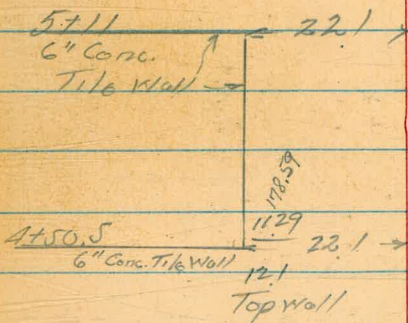 5+11 22.1
6" Conc.
Tile Wall
178.59
11.29
4+50.5 22.1
6" Conc. Tile Wall
12.1
Top Wall